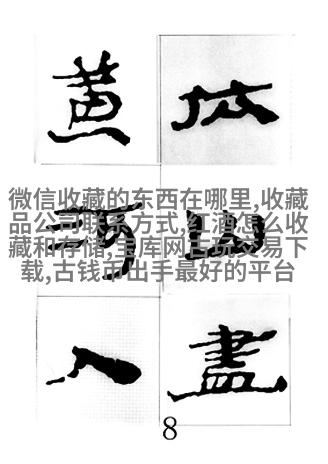 依山盡
黄河入
微信收藏的东西在哪里,收藏
品公司联系方式,红酒怎么收
藏和存储,宝库网古玩交易下
载,古钱币出手最好的平台
8